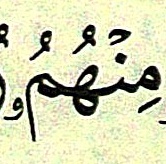 مِنۡهُمُۥ